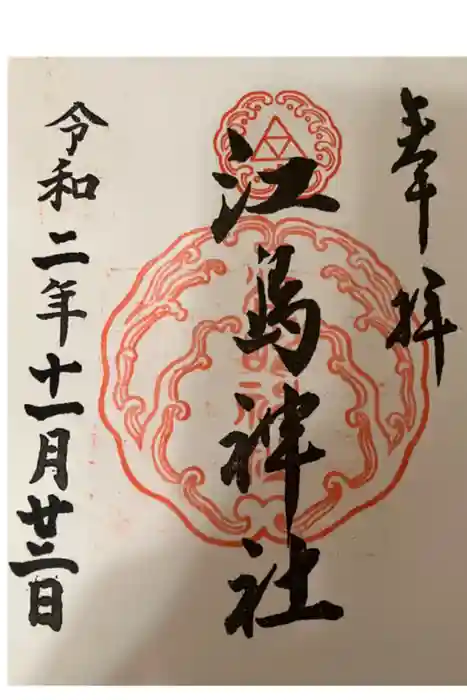 奉拝
江島神社
令和二年十一月廿三日